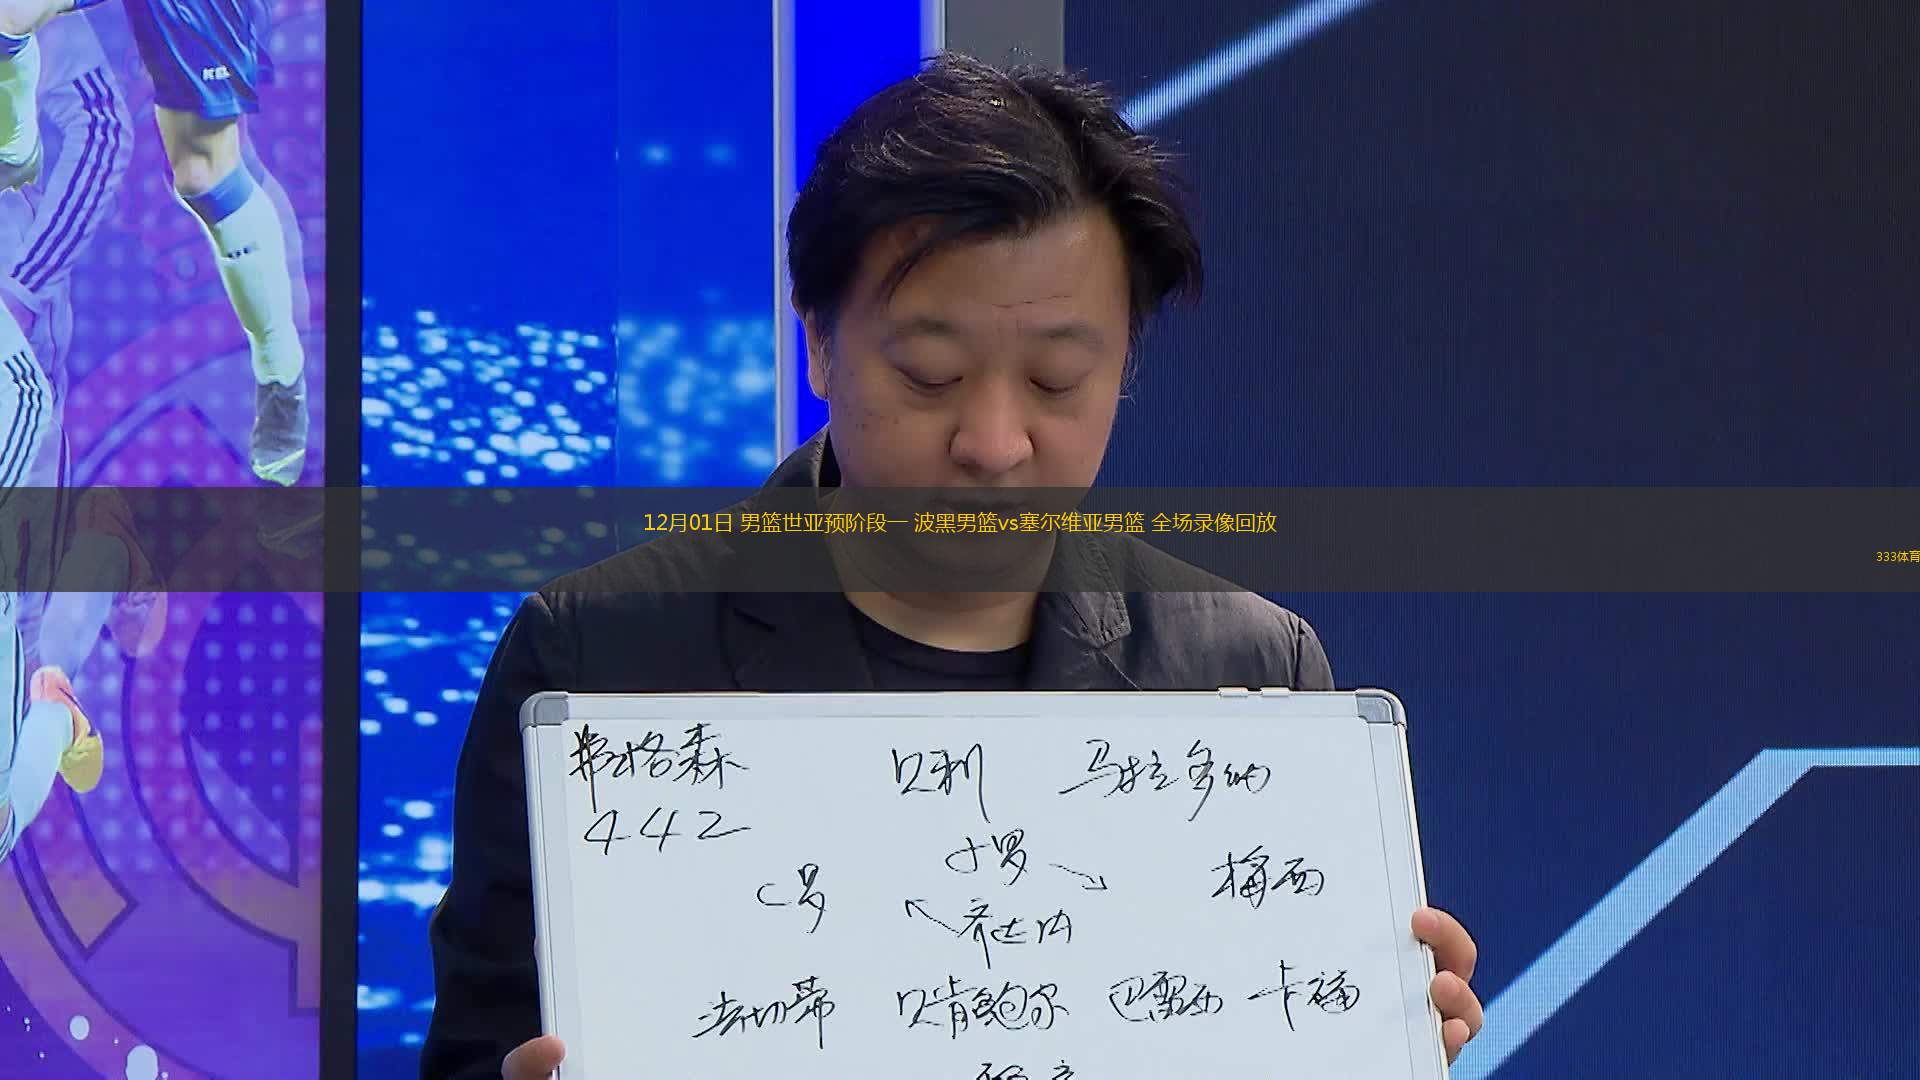 12月01日 男篮世亚预阶段一 波黑男篮vs塞尔维亚男篮 全场录像回放
333体育
弗格森 贝利 马拉多纳
442
小罗
C罗 梅西
齐达内
法切蒂 贝肯鲍尔 巴雷西 卡福